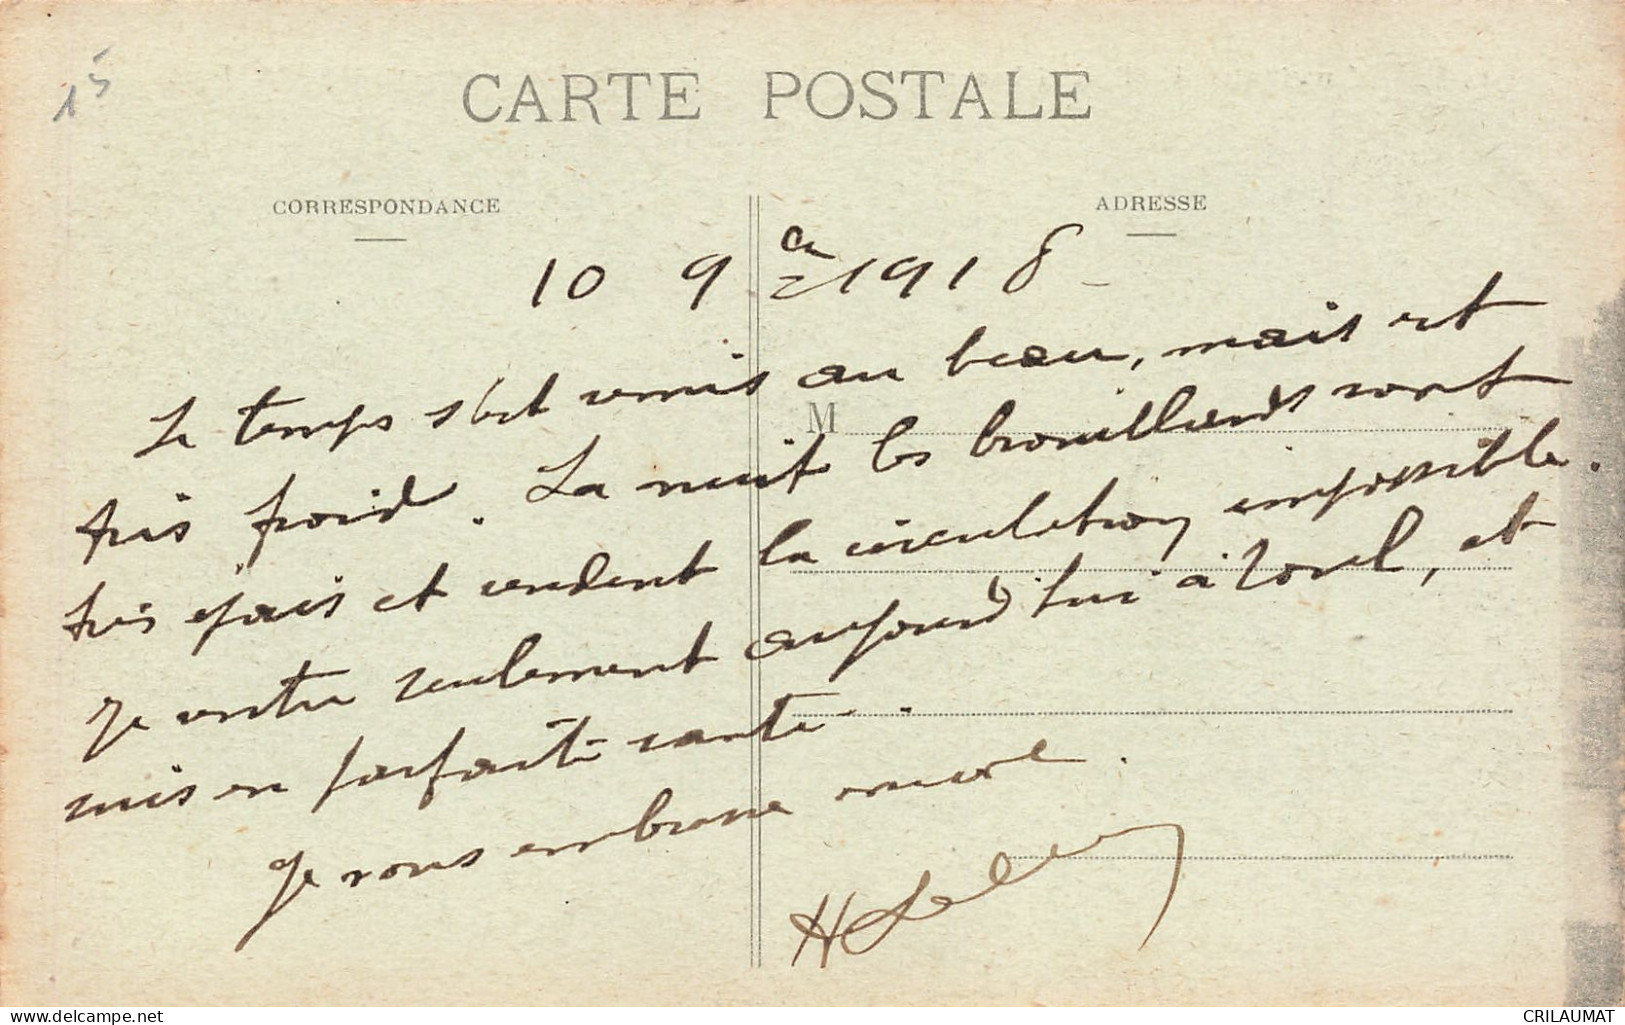 15
CARTE POSTALE
CORRESPONDANCE
ADRESSE
10 9 1918
Le temps s'est remis au beau, mais est
très froid. La nuit les brouillards sont
M
très épais et rendent la circulation impossible.
Je rentre seulement aujourd'hui à Toul, et
suis en parfaite santé.
Je vous embrasse
H
delcampe.net
CRILAUMAT